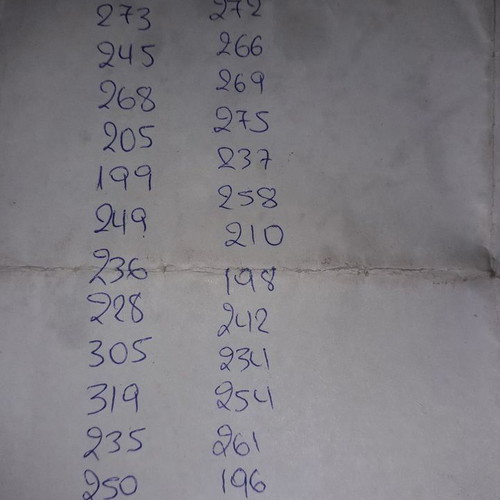 273 272
245 266
268 269
205 275
199 237
249 258
236 210
228 198
305 242
319 234
235 254
250 261
196